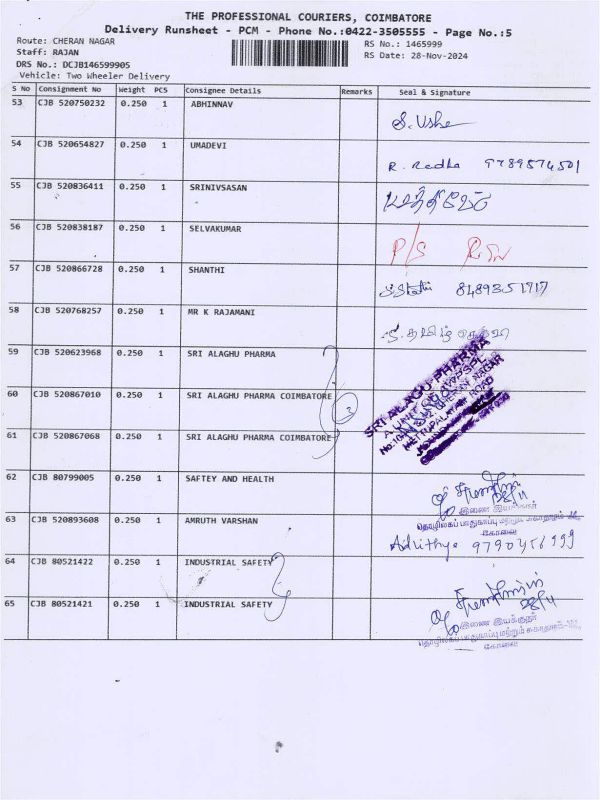 THE PROFESSIONAL COURIERS, COIMBATORE
Delivery Runsheet - PCM - Phone No.:0422-3505555 - Page No.:5
Route: CHERAN NAGAR
RS No.: 1465999
Staff: RAJAN
RS Date: 28-Nov-2024
DRS No.: DCJB146599905
Vehicle: Two Wheeler Delivery
S No Consignment No Weight PCS Consignee Details Remarks Seal & Signature
53 CJB 520750232 0.250 1 ABHINNAV S. Usha
54 CJB 520654827 0.250 1 UMADEVI R. Radha 9789574501
55 CJB 520836411 0.250 1 SRINIVSASAN
56 CJB 520838187 0.250 1 SELVAKUMAR P/S
57 CJB 520866728 0.250 1 SHANTHI 8489351717
58 CJB 520768257 0.250 1 MR K RAJAMANI
59 CJB 520623968 0.250 1 SRI ALAGHU PHARMA
60 CJB 520867010 0.250 1 SRI ALAGHU PHARMA COIMBATORE 3
61 CJB 520867068 0.250 1 SRI ALAGHU PHARMA COIMBATORE
SRI ALAGU PHARMA
A UNIT OF
CHERAN NAGAR
METTUPALAYAM ROAD
62 CJB 80799005 0.250 1 SAFTEY AND HEALTH 28/11
இணை இயக்குநர்
தொழிலகப் பாதுகாப்பு மற்றும் சுகாதாரம்
கோவை
63 CJB 520893608 0.250 1 AMRUTH VARSHAN Adrithya 9790456999
64 CJB 80521422 0.250 1 INDUSTRIAL SAFETY
65 CJB 80521421 0.250 1 INDUSTRIAL SAFETY 28/11
இணை இயக்குநர்
தொழிலகப் பாதுகாப்பு மற்றும் சுகாதாரம்
கோவை